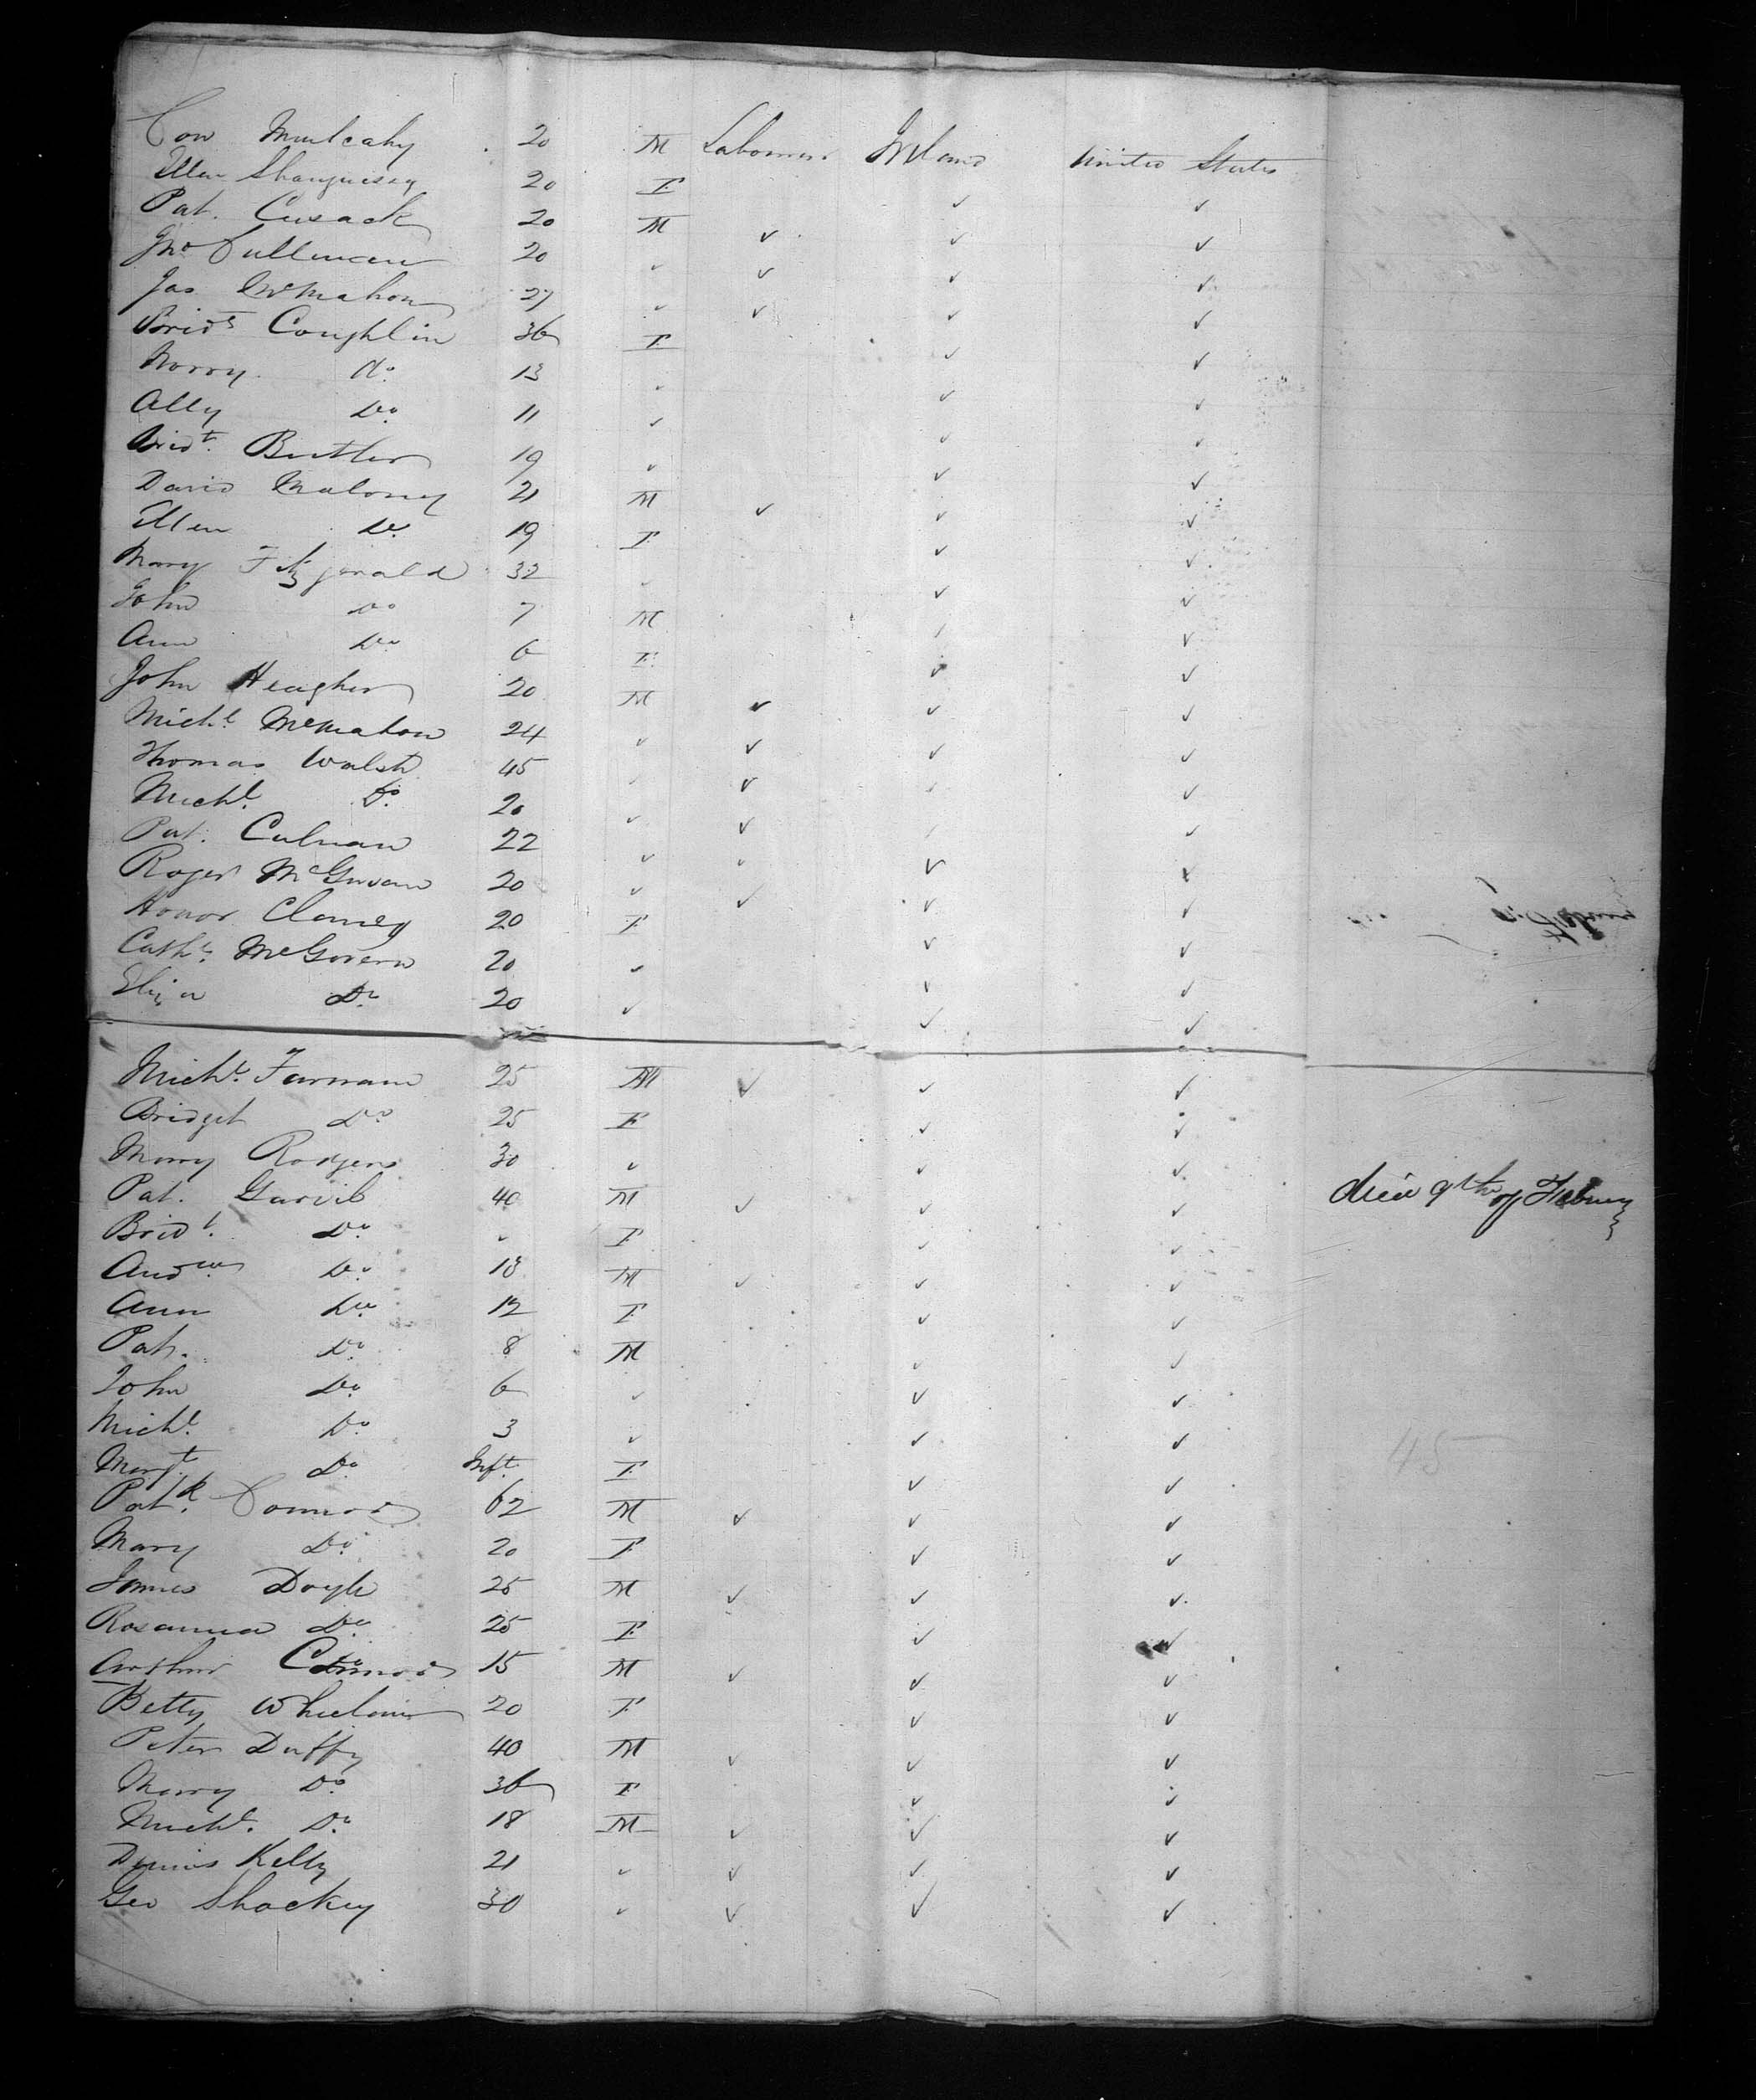 Con Mulcahy 20 M Labourer Ireland United States
Ellen Shaugnessy 20 F ✓ ✓
Pat. Cusack 20 M ✓ ✓ ✓
Jno Cullinan 20 ✓ ✓ ✓ ✓
Jas McMahon 27 ✓ ✓ ✓ ✓
Bridt Coughlin 36 F ✓ ✓
Norry Do 13 ✓ ✓ ✓
Ally Do 11 ✓ ✓ ✓
Bridt. Butler 19 ✓ ✓ ✓
David Maloney 21 M ✓ ✓ ✓
Ellen Do 19 F ✓ ✓
Mary Fitzgerald 32 ✓ ✓ ✓
John Do 7 M ✓ ✓
Ann Do 6 F ✓ ✓
John Heagher 20 M ✓ ✓ ✓
Michl. McMahon 24 ✓ ✓ ✓ ✓
Thomas Walsh 45 ✓ ✓ ✓ ✓
Michl. Do 20 ✓ ✓ ✓ ✓
Pat. Culnan 22 ✓ ✓ ✓ ✓
Roger McGowan 20 ✓ ✓ ✓ ✓
Honor Clancy 20 F ✓ ✓
Cathe. McGovern 20 ✓ ✓ ✓
Eliza Do 20 ✓ ✓ ✓
Michl. Farnam 25 M ✓ ✓ ✓
Bridget Do 25 F ✓ ✓
Mary Rodgers 30 ✓ ✓ ✓
Pat. Garvil 40 M ✓ ✓ ✓ died 9th of Febuary
Bridt. Do ✓ F ✓ ✓
Andw. Do 13 M ✓ ✓ ✓
Ann Do 12 F ✓ ✓
Pat. Do 8 M ✓ ✓
John Do 6 ✓ ✓ ✓
Michl. Do 3 ✓ ✓ ✓
Margt. Do Inft. F ✓ ✓
Patk. Connor 62 M ✓ ✓ ✓
Mary Do 20 F ✓ ✓
James Doyle 25 M ✓ ✓ ✓
Rosanna Do 25 F ✓ ✓
Arthur Connor 15 M ✓ ✓ ✓
Betty Whelan 20 F ✓ ✓
Peter Duffy 40 M ✓ ✓ ✓
Mary Do 36 F ✓ ✓
Michl. Do 18 M ✓ ✓ ✓
Dennis Kelly 21 ✓ ✓ ✓ ✓
Geo Shockey 30 ✓ ✓ ✓ ✓
45